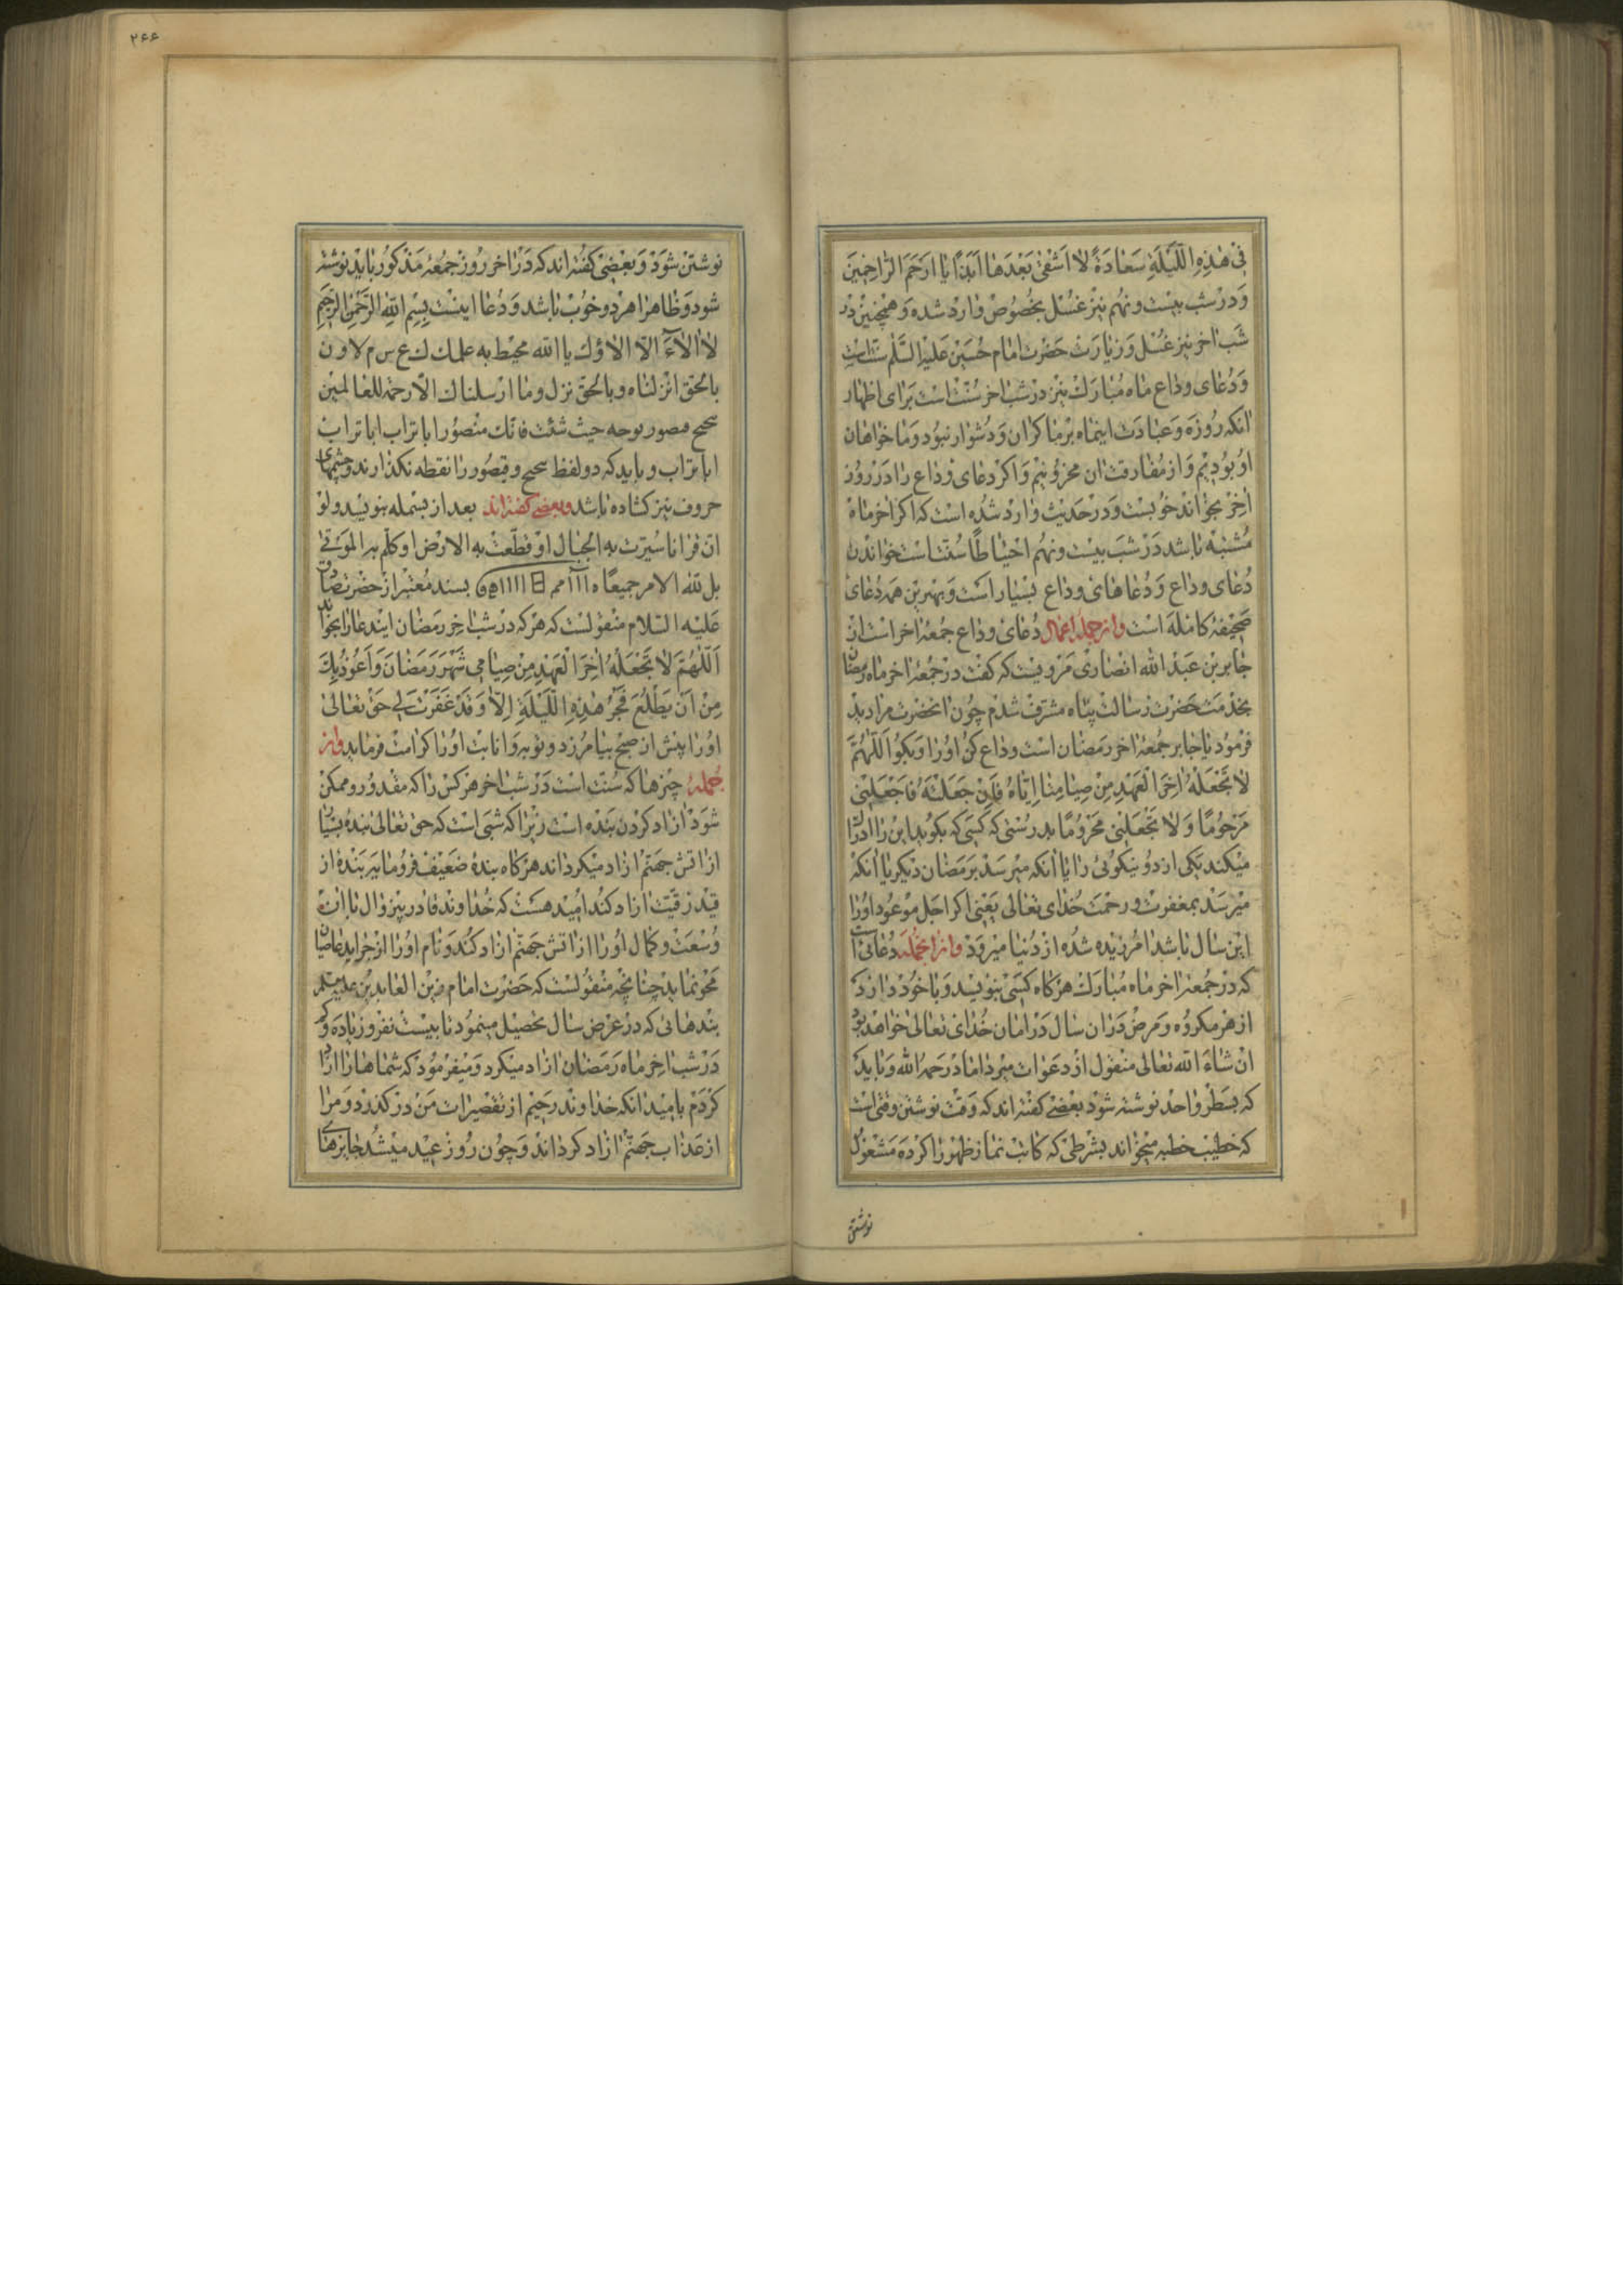 فی هٰذِهِ اللَّیْلَةِ سَعٰادَةً لٰا اَشْقیٰ بَعْدَهٰا اَبَدًا یٰا اَرْحَمَ الرّٰاحِمینَ
وَدَرْ شب بیست ونهم نیز غسل بخصوص وارد شده وَهمچنین در
شَب اخر نیز غسل وَزیارت حضرت امام حُسَین عَلیه السَّلم سنّت است
وَدُعای وداع ماه مُبارَک نیز درشب اخر سُنّت است بَرای اظهار
انکه روزَه وَعبادَت اینماه برما کران وَدُشوار نبود وَما خواهان
او بودیم وَاز مُفارقت ان محزونیم وَاکر دعای وَداع را دَرْ روز
اخِر بخواند خوبست وَدَر حَدیث وارد شُده است که اکر اخر ماه
مُشتبه باشد دَر شَب بیست ونهُم احتیاطًا سُنّت است خواندن
دُعای وداع وَدُعاهای وداع بسیار است وَبهترین همه دُعای
صَحیفهٔ کامله است واز جمله اعمال دُعای وداع جمعهٔ اخر است از
جابر بن عَبد الله انصاری مَرویست که کفت در جُمعهٔ اخر ماه رمضان
بخدمت حَضرت رسالت پناه مشرّف شدم چون انحضرت مرا دید
فرمود یا جابر جمعهٔ اخر رمضان است وداع کن اورا وَبکو اَللّٰهُمَّ
لا تَجْعَلْهُ اٰخِرَ الْعَهْدِ مِنْ صِیٰامِنٰا اِیّٰاهُ فَاِنْ جَعَلْتَهُ فَاجْعَلْنی
مَرْحُومًا وَلا تَجْعَلْنی مَحْرُومًا بدرستی که کسی که بکوید این را ادراک
میکند یکی از دو نیکوئی را یا انکه میرسد برَمَضان دیکر یا انکه
میرسَد بمغفرت ورحمَت خدای تعالی یَعنی اکر اجل موعود اورا
این سال باشد امرزیده شده از دُنیا میرود واز انجمله دُعائی است
که در جُمعهٔ اخر ماه مُبارَک هرکاه کسی بنویسد وَبا خود دارد
از هر مکروُه وَمرض دران سال دَر امان خدای تعالی خواهد بود
ان شاءَ الله تعالی منقول از دعوات میرداماد رَحمه الله وَباید
که بسَطر واحد نوشته شود بعضی کفته اند که وقت نوشتن وقتی است
که خطیب خطبه میخواند بشرطی که کاتب نماز ظهر را کرده مَشغول
نوشتن
۲۶۶
نوشتن شود وَبعضی کفته اند که دَر اخر روز جمعهٔ مَذکور باید نوشته
شود وَظاهرا هر دو خوب باشد وَدُعا اینست بِسْمِ اللّٰهِ الرَّحْمٰنِ الرَّحیمِ
لا الاءَ الّا الاؤک یا الله محیط به علمک ک ع س م لا و ن
بالحق انزلناه وبالحق نزل وما ارسلناک الّا رحمة للعالمین
صحح مصور بوجه حیث شئت فانّک منصورا باتراب اباتراب
اباتراب وباید که دو لفظ صحح وقصور را نقطه نکذارند وچشمهای
حروف نیز کشاده باشد وبعضی کفته اند بعد از بسمله بنویسد ولو
انّ قرانا سیّرت به الجبال او قطّعت به الارض او کلّم به الموتی
بل لله الامر جمیعًا بسند معتبر از حضرت صادق
عَلیه السّلام منقولست که هرکه در شب اخر رمضان ایندعا را بخواند
اَللّٰهُمَّ لا تَجْعَلْهُ اٰخِرَ الْعَهْدِ مِنْ صِیٰامی شَهْرَ رَمَضٰانَ وَاَعُوذُ بِکَ
مِنْ اَنْ یَطْلُعَ فَجْرُ هٰذِهِ اللَّیْلَةِ اِلّٰا وَقَدْ غَفَرْتَ لی حق تعالی
اورا پیش از صبح بیامرزد وتوبه وَانابت اورا کرامت فرماید واز
جمله چیزها که سُنّت است دَر شب اخر هرکس را که مقدور وممکن
شود ازاد کردن بنده است زیرا که شبی است که حق تعالی بندهٔ بسیار
از اتش جهنّم ازاد میکرداند هرکاه بندهٔ ضعیف فرومایه بندهٔ از
قید رقیّت ازاد کند امید هست که خداوند قادر بیزوال با ان
وُسعت وکمال اورا از اتش جهنّم ازاد کند وَنام اورا از جراید عاصیان
مَحو نماید چنانچه منقولست که حَضرت امام زین العابدین علیه السلم
بندهائی که در عرض سال تحصیل مینمود تا بیست نفر وزیاده وکم
دَر شب اخر ماه رَمضان ازاد میکرد وَمیفرمود که شماها را ازاد
کردَم بامید انکه خداوند رحیم از تقصیرات من درکذرد وَمرا
از عَذاب جهنّم ازاد کرداند وَچون روز عید میشُد جایزهای